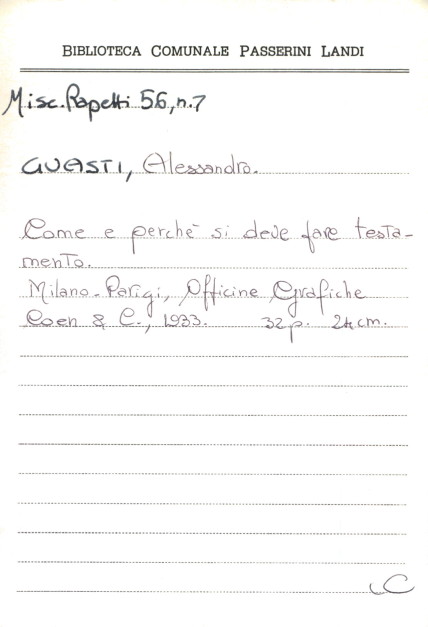 BIBLIOTECA COMUNALE PASSERINI LANDI
Misc. Rapetti 56, n.7
GUASTI, Alessandro.
Come e perchè si deve fare testa-
mento.
Milano-Parigi, Officine Grafiche
Coen & C., 1933. 32 p. 24 cm.